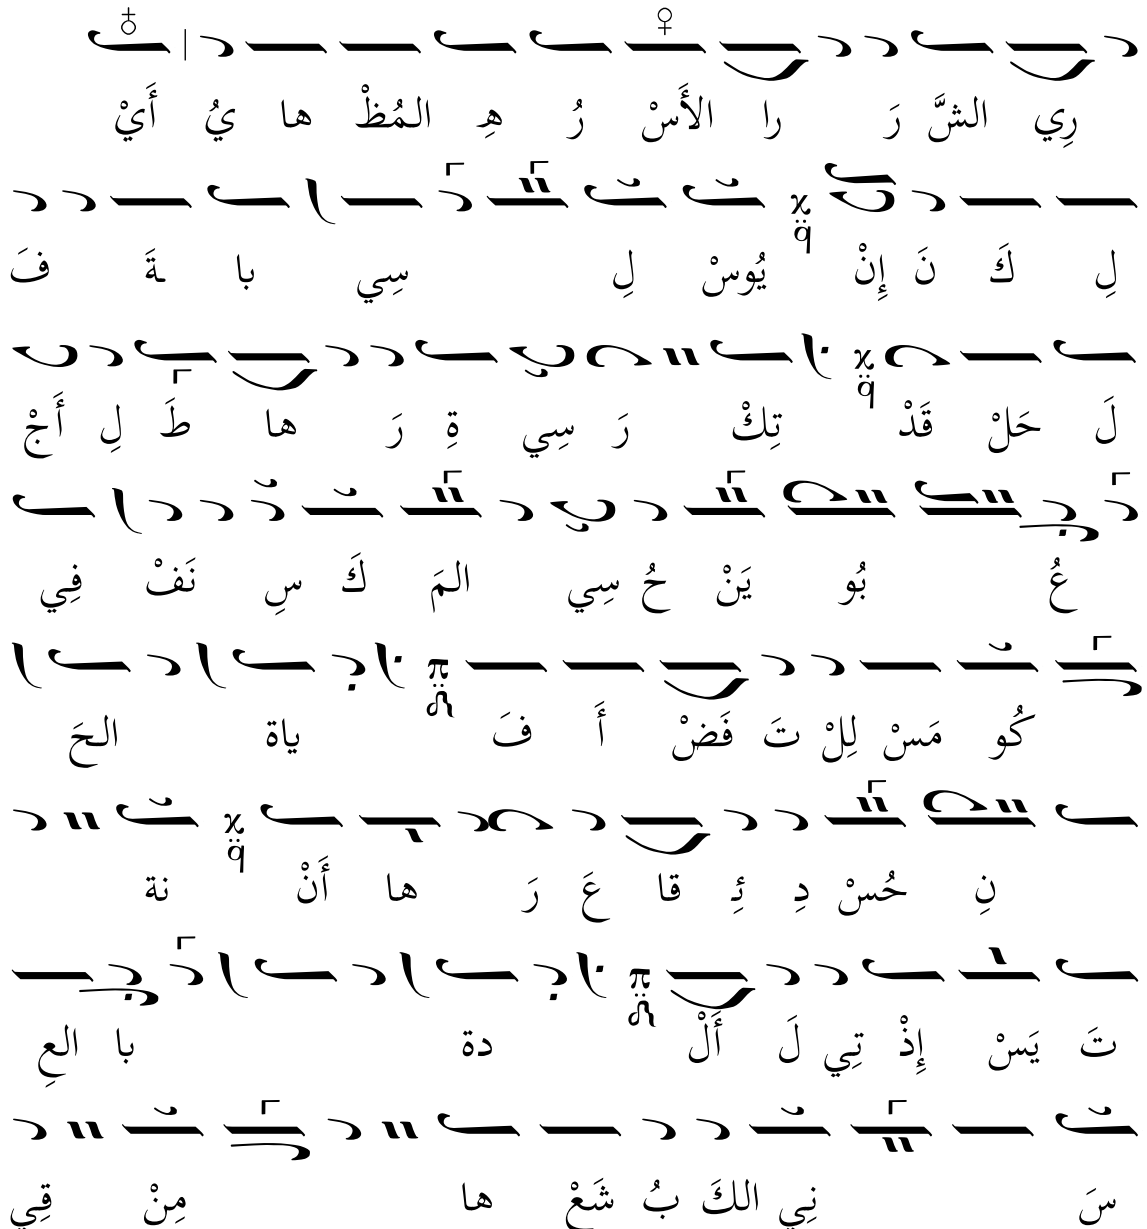 أَيْ يُ ها المُظْ هِـ رُ الأَسْ را رَ الشَّ رِي
فَ ـةَ با سِي لِ يُوسْ إِنْ نَ كَ لِ
أَجْ لِ طَ ها رَ ةِ سِي رَ تِكْ قَدْ حَلْ لَ
فِي نَفْ سِ كَ المَ سِي حُ يَنْ بُو عُ
الحَ ياة فَ أَ فَضْ تَ لِلْ مَسْ كُو
نة أَنْ ها رَ عَ قا ئِـ دِ حُسْ نِ
العِ با دة أَلْ لَ تِي إِذْ يَسْ تَ
قِي مِنْ ها شَعْ بُ الكَ نِي سَ